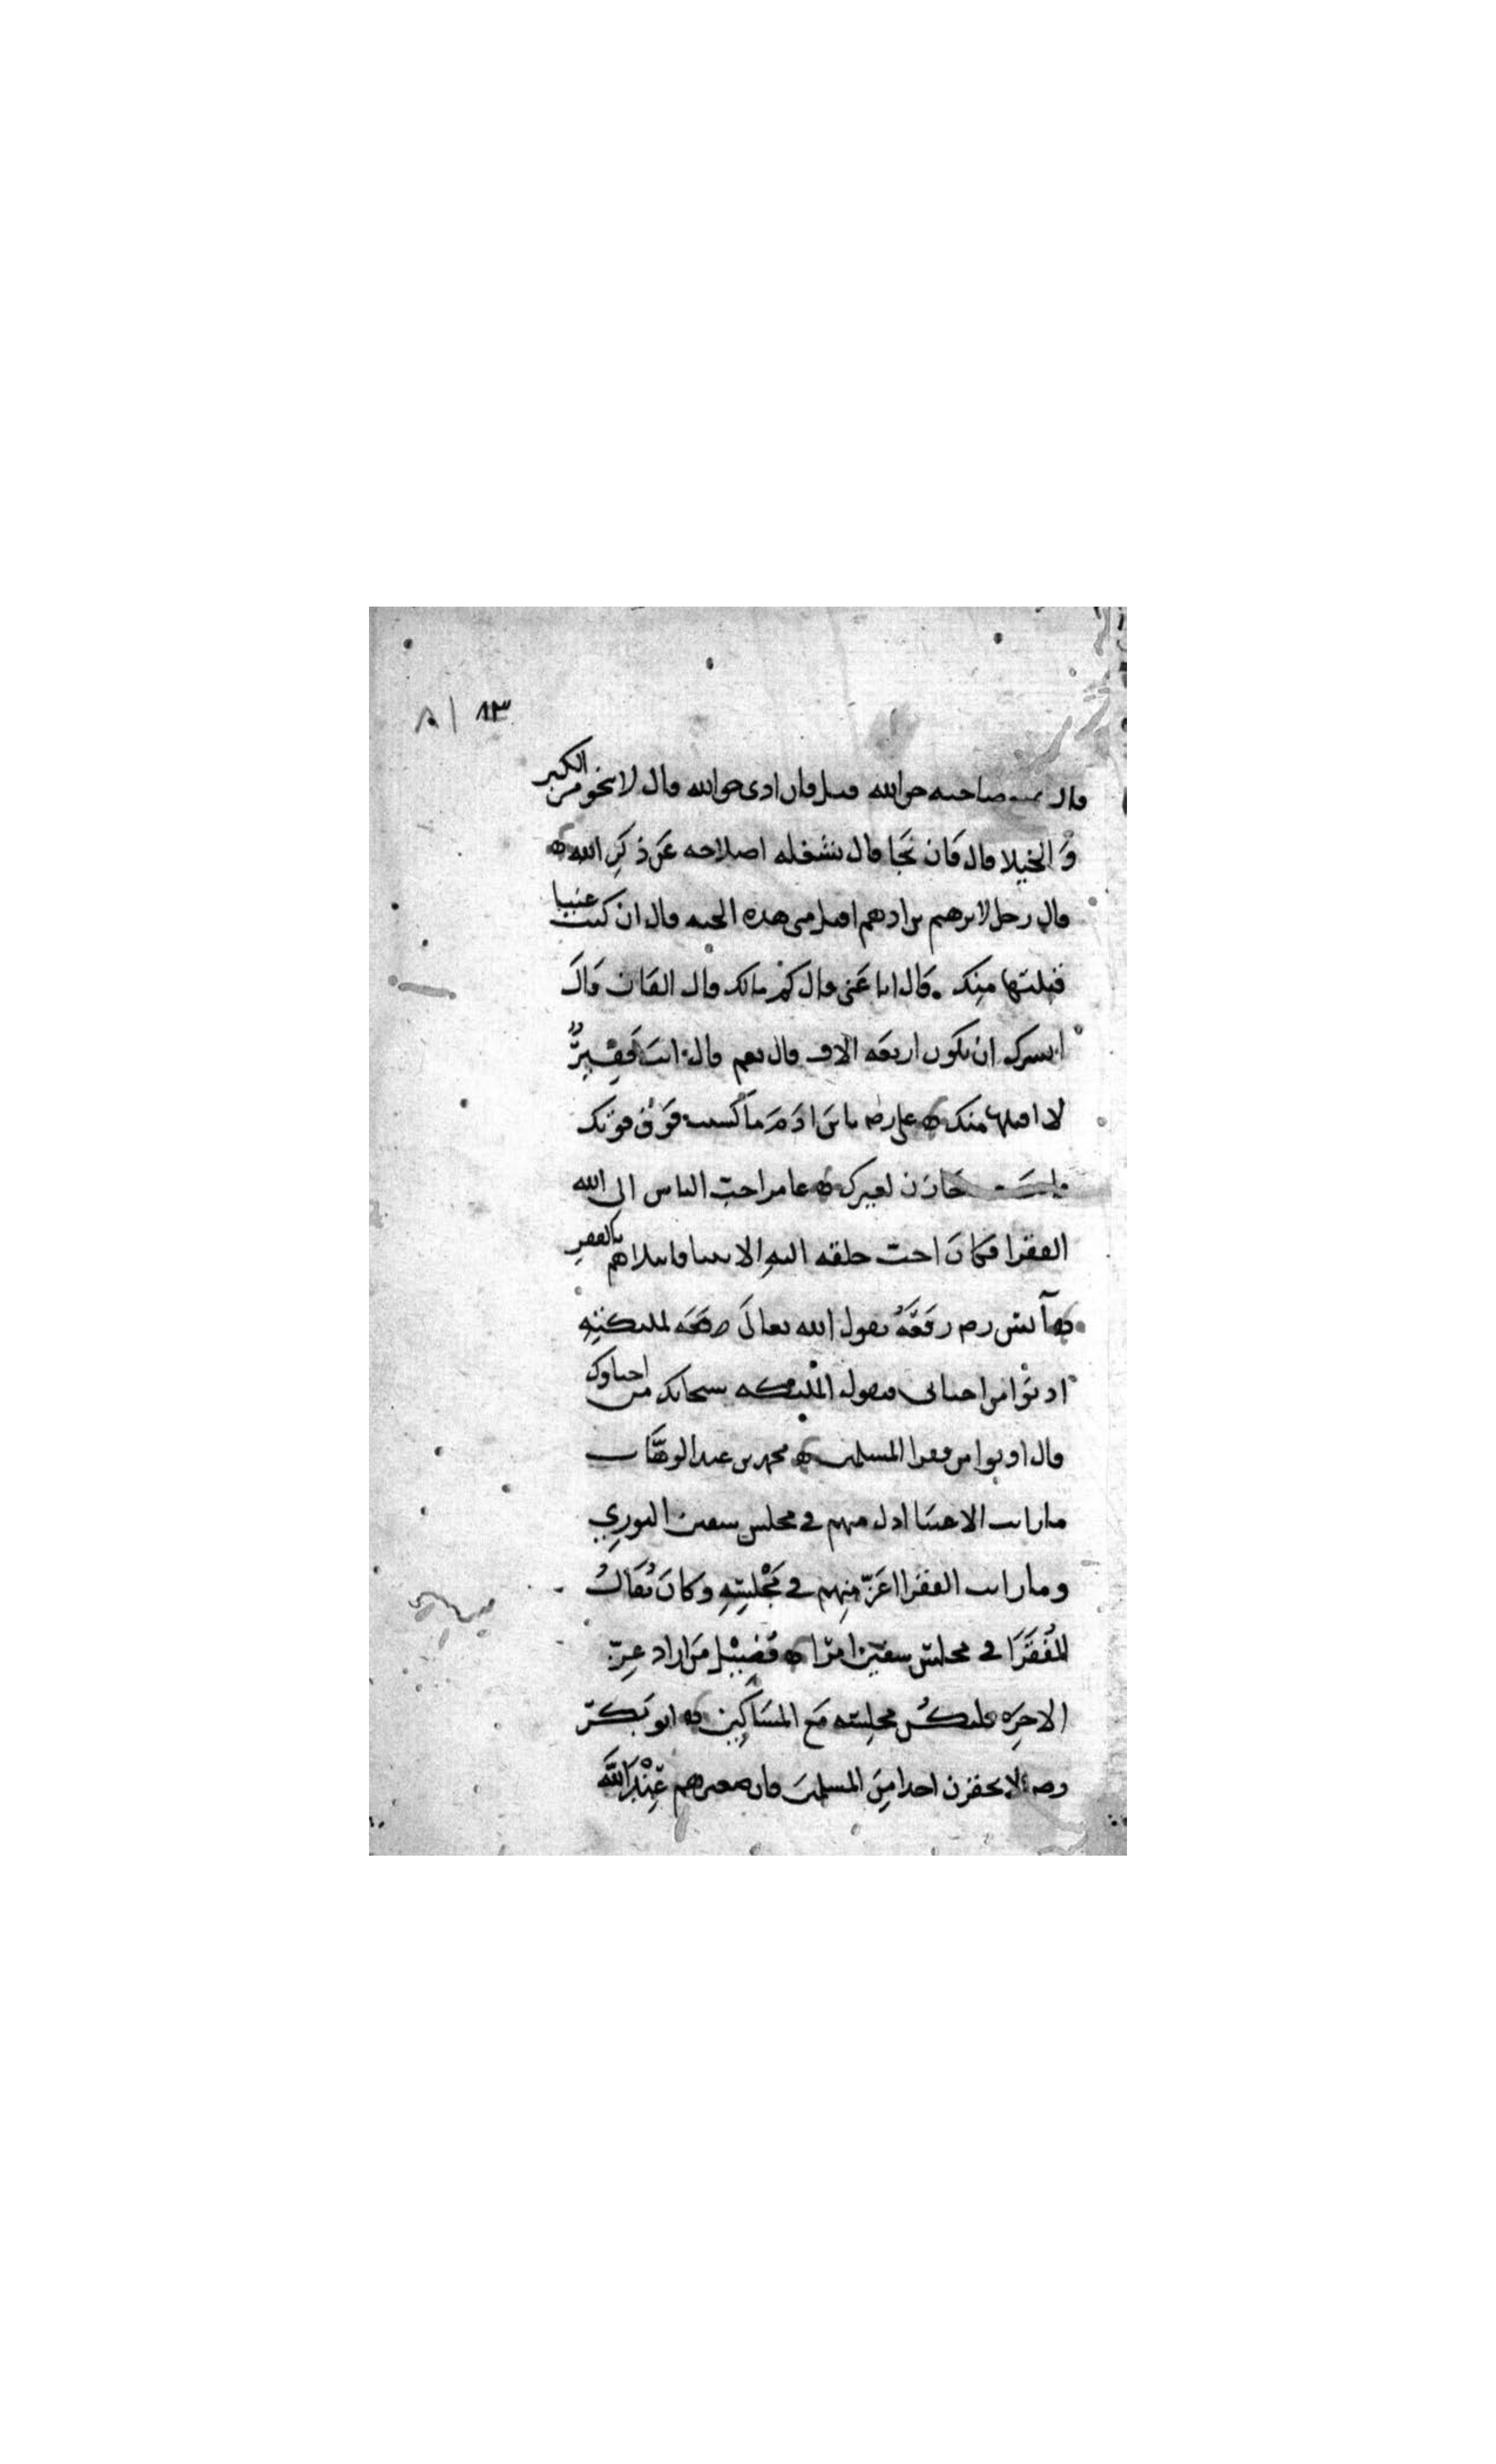 ٨٣ ٨٠
قال صاحبه حق الله قيل فان ادى حق الله قال لا ينجو من الكبر
وَالخيلا قال فَان نَجَا قال يشغله اصلاحه عَن ذكرِ الله
قال رجل لابرهيم بن ادهم اقبل مني هذه الجبه قال ان كنت غنيا
قبلتها مِنك قال انا غَني قال كم مالك قال الفان قَالَ
ايسرك ان يكون اربعَه الاف قال نعم قال انت فَقِير
لا اقبلها منك علي رضه يابنَ ادَمَ مَا كسبت فوق قوتك
خَازن لغيرك عامر احبّ الناس الى الله
الفقرا فكانَ احب خلقه اليهِ الانبيا فابتلاهم بالفقرِ
انس رضه رفعَهُ يقول الله تعالَى لمليكتِهِ
ادنُوا من احباى فيقول المليكه سبحانك من احباوك
قال ادنوا من فقرا المسلمين محمد بن عبد الوهّاب
ما رايت الاغنيَا اذل منهم في مجلس سفين الثوري
وما رايت الفقرا اعَزّ مِنهم في مَجْلِسِهِ وكانَ يُقَالُ
للفُقَرَا في مجلس سفين امرا فُضَيْل مَن اراد عِزّ
الاخِرَه فليكُن مجلسه مَع المسَاكِين ابو بَكر
رضه لا يحقرن احد احدا مِنَ المسلمينَ فان صغيرهم عِنْدَ اللهِ